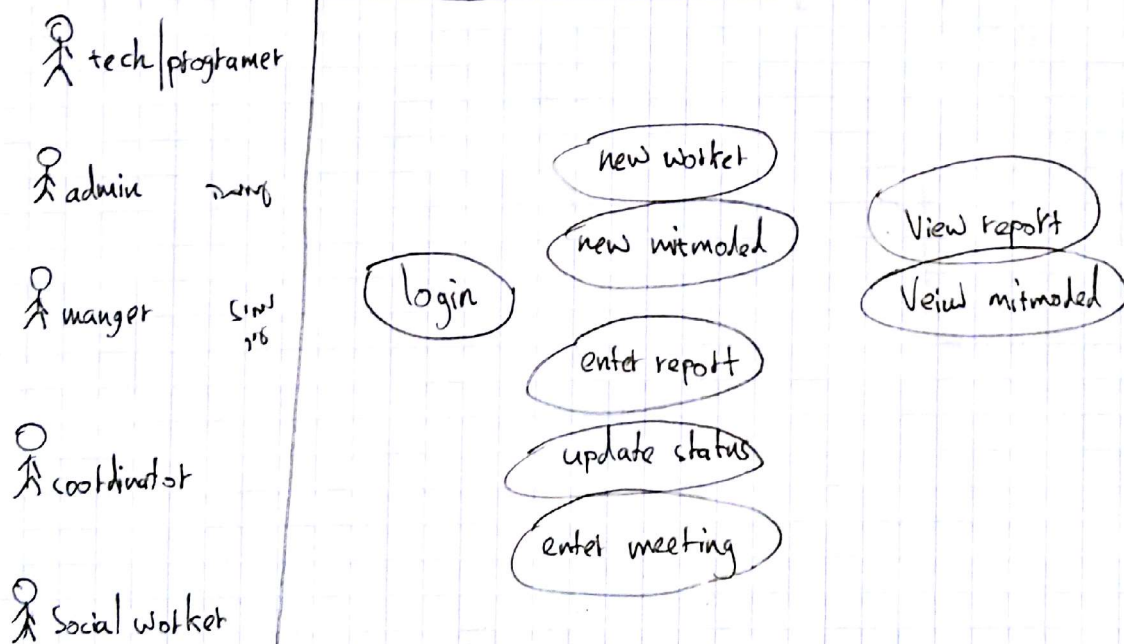 tech/programer
admin
manger
coordinator
Social worker
login
new worker
new mitmoded
enter report
update status
enter meeting
View report
Veiw mitmoded